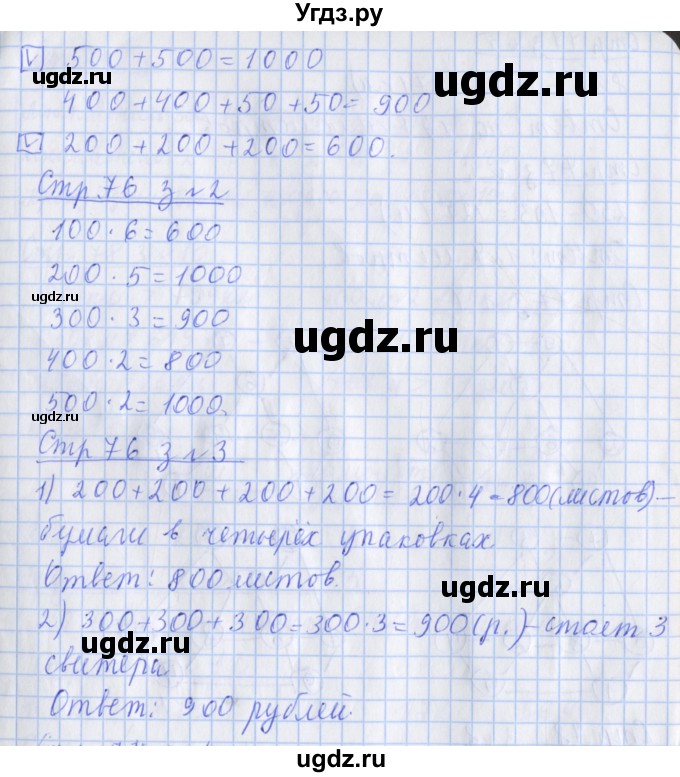 Угдз.ру
V) 500 + 500 = 1000
ugdz.ru
ugdz.ru
400 + 400 + 50 + 50 = 900
200 + 200 + 200 = 600.
Стр 76 з №2
100 · 6 = 600
200 · 5 = 1000
ugdz.ru
300 · 3 = 900
ugdz.ru
400 · 2 = 800
500 · 2 = 1000.
ugdz.ru
Стр 76 з №3
1) 200 + 200 + 200 + 200 = 200 · 4 = 800 (листов) —
бумаги в четырёх упаковках
Ответ: 800 листов.
ugdz.ru
2) 300 + 300 + 300 = 300 · 3 = 900 (р.) — стоят 3
свитера
Ответ: 900 рублей.
ugdz.ru
ugdz.ru